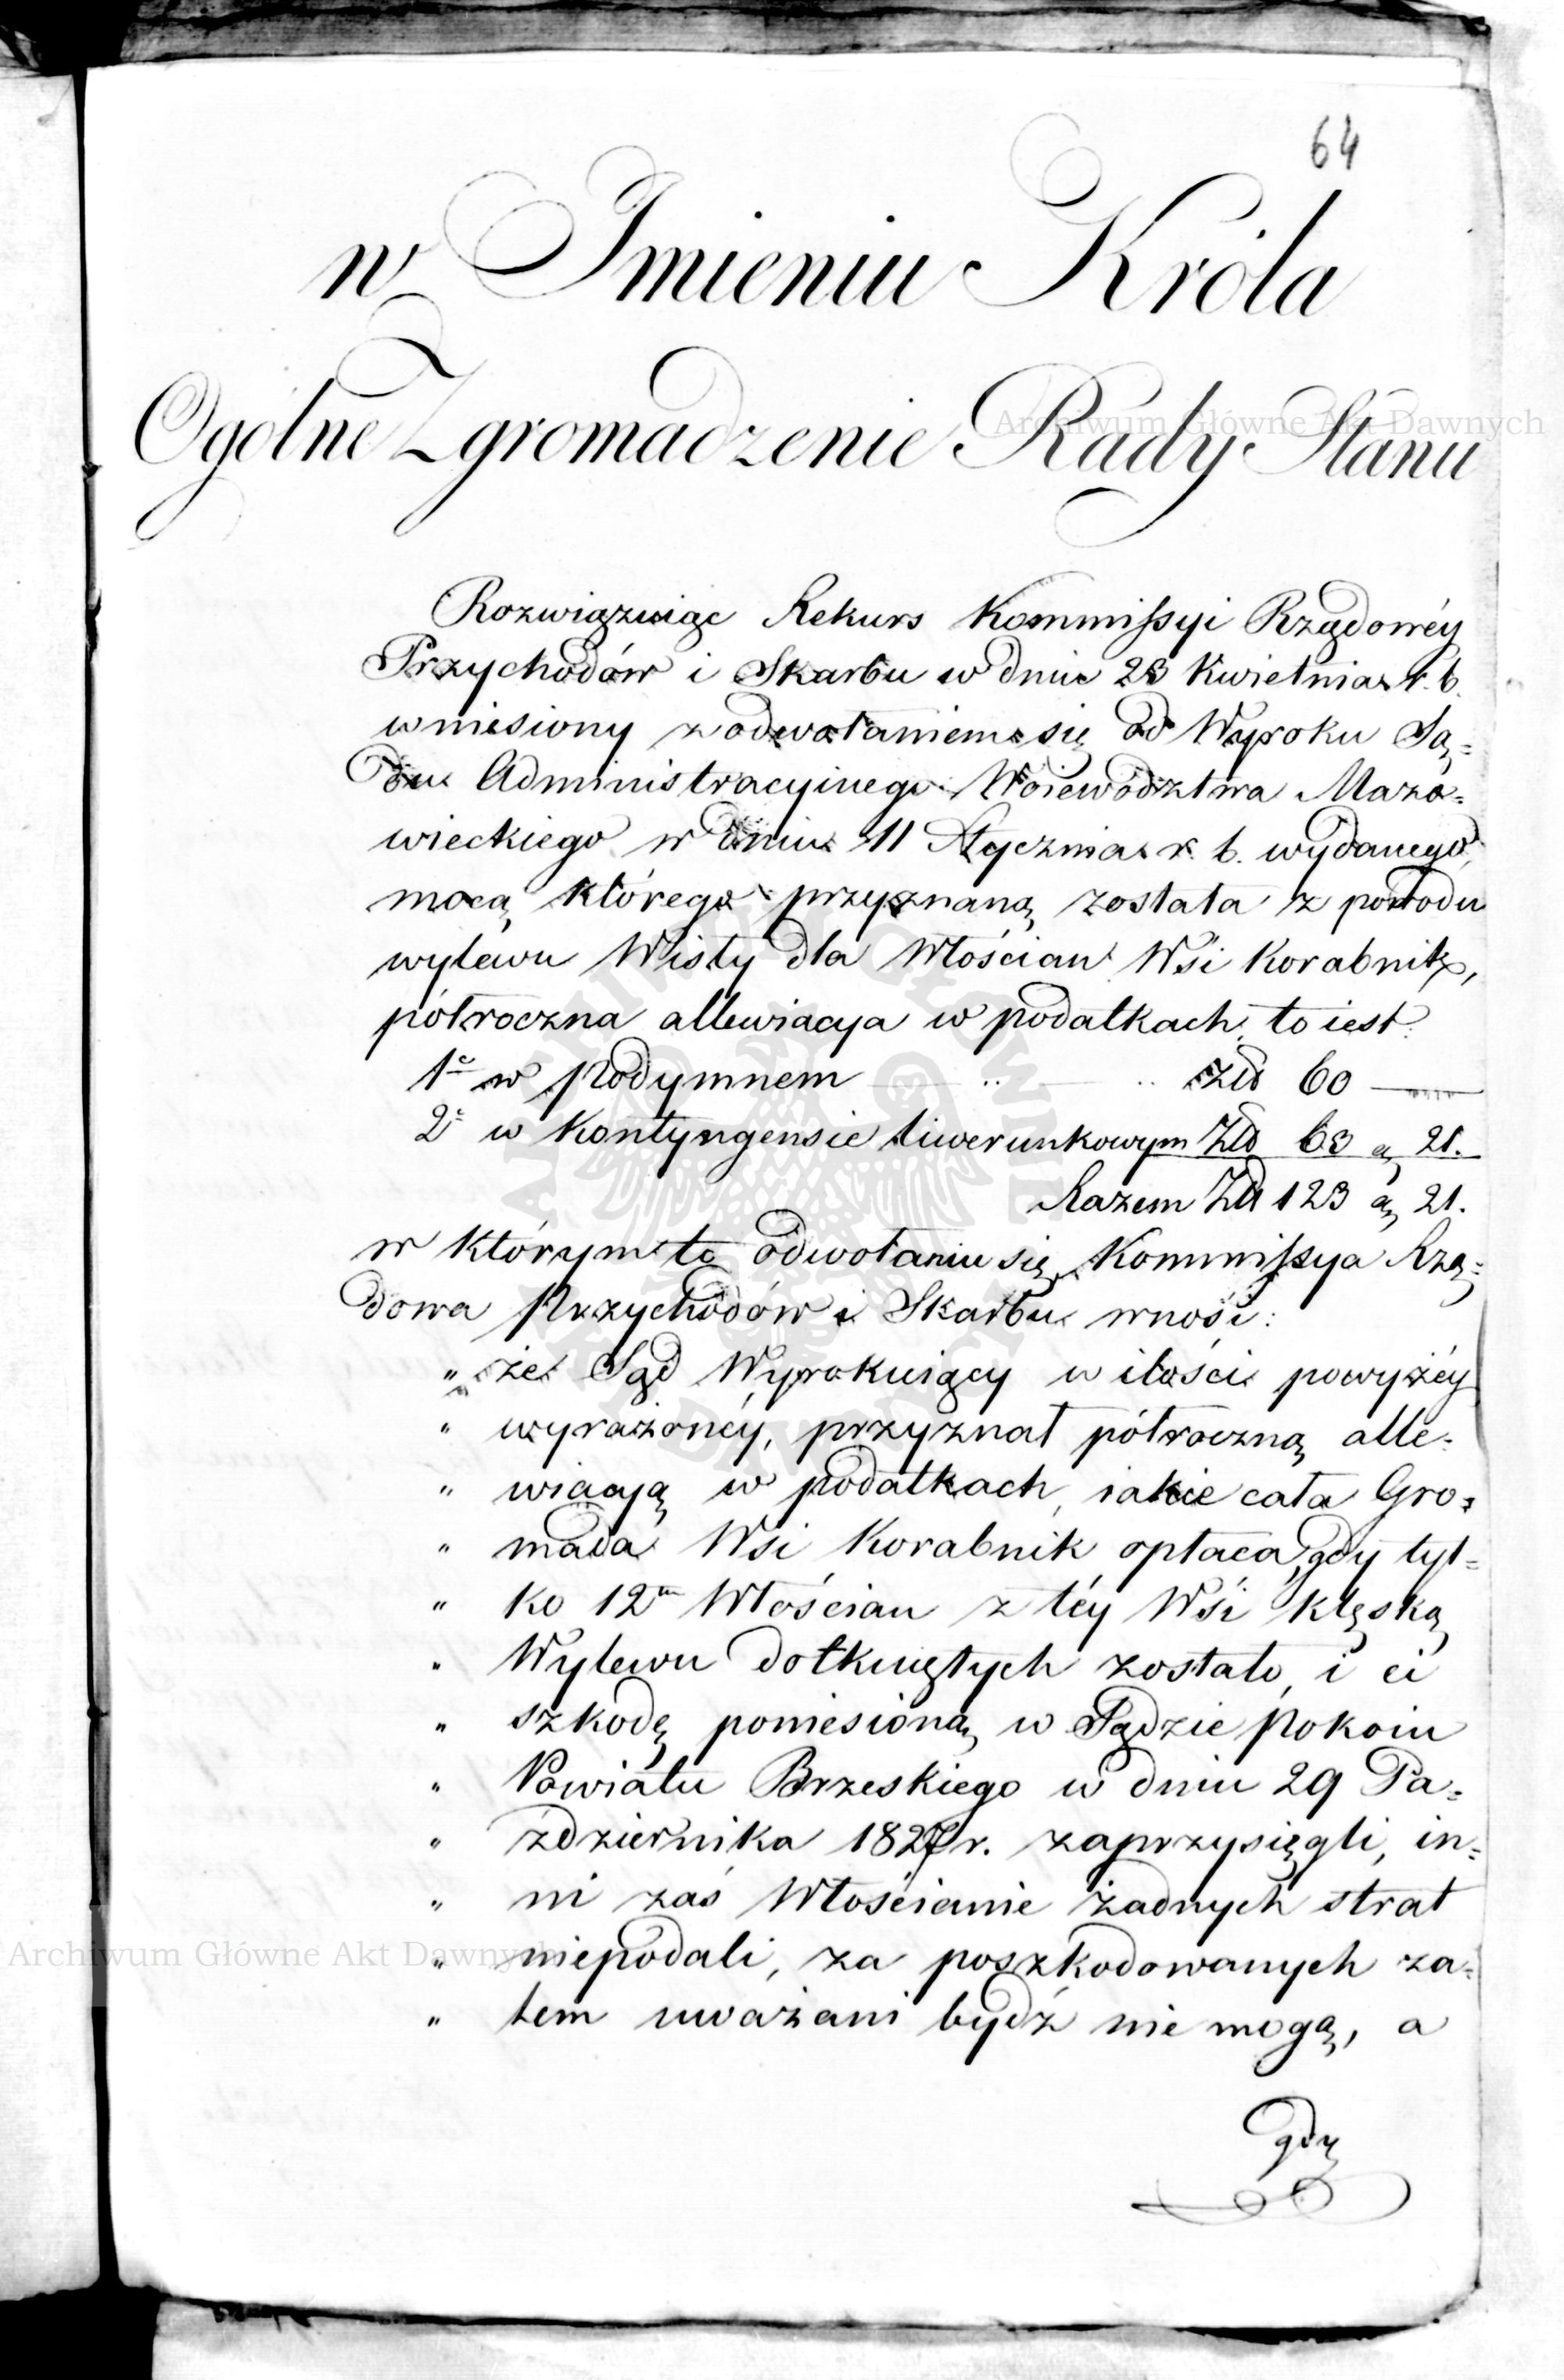 64
w Imieniu Króla
Ogólne Zgromadzenie Rady Stanu
Rozwiązuiąc Rekurs Kommissyi Rządowéy
Przychodów i Skarbu w dniu 23 Kwietnia r. b.
wniesiony z odwołaniem się od Wyroku Są=
du Administracyinego Woiewództwa Mazo=
wieckiego w dniu 11 Stycznia r. b. wydanego,
mocą którego przyznaną została z powodu
wylewu Wisły dla Włościan Wsi Korabnik,
półroczna allewiacya w podatkach, to iest:
1e w Podymnem .. .. Złp 60 —
2e w Kontyngensie liwerunkowym Złp 63 g 21.
Razem Złp 123 g 21.
w którym to odwołaniu się, Kommissya Rzą=
dowa Przychodów i Skarbu wnosi:
„ że Sąd Wyrokuiący w ilości powyżéy
„ wyrażonéy, przyznał półroczną alle=
„ wiacyą w podatkach, iakie cała Gro=
„ mada Wsi Korabnik opłaca, gdy tyl=
„ ko 12tu Włościan z téy Wsi klęską
„ Wylewu dotkniętych zostało, i ci
„ szkodę poniesioną w Sądzie Pokoiu
„ Powiatu Brzeskiego w dniu 29 Pa=
„ ździernika 1827 r. zaprzysięgli, in=
„ ni zaś Włościanie żadnych strat
„ niepodali, za poszkodowanych za=
„ tem uważani bydź nie mogą, a
gdy
Archiwum Główne Akt Dawnych
Archiwum Główne Akt Dawnych